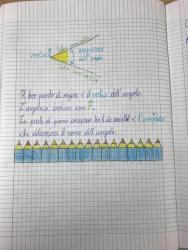 vertice
ampiezza
dell'angolo
Il loro punto di origine è il vertice dell'angolo.
L'angolo si indica con
La parte di piano compresa tra le due semirette è l'ampiezza
che determina il nome dell'angolo.